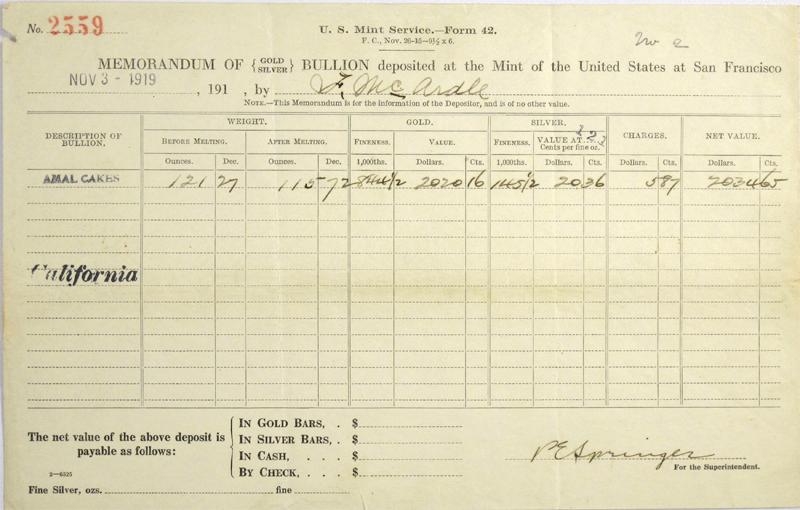 No. 2559
U. S. Mint Service.—Form 42.
F. C., Nov. 26-15—9½ x 6.
MEMORANDUM OF {GOLD SILVER} BULLION deposited at the Mint of the United States at San Francisco
NOV 3 - 1919 , 191 , by F. McArdle
NOTE.—This Memorandum is for the information of the Depositor, and is of no other value.
DESCRIPTION OF BULLION. WEIGHT. GOLD. SILVER. CHARGES. NET VALUE.
BEFORE MELTING. AFTER MELTING. FINENESS. VALUE. FINENESS. VALUE AT Cents per fine oz.
Ounces. Dec. Ounces. Dec. 1,000ths. Dollars. Cts. 1,000ths. Dollars. Cts. Dollars. Cts. Dollars. Cts.
AMAL CAKES 121 27 115 72 844½ 2020 16 145½ 20 36 5 87 2034 65
California
The net value of the above deposit is payable as follows:
IN GOLD BARS, . $
IN SILVER BARS, . $
IN CASH, . . . $
BY CHECK, . . . $
P E Springer
For the Superintendent.
2—6525
Fine Silver, ozs. fine